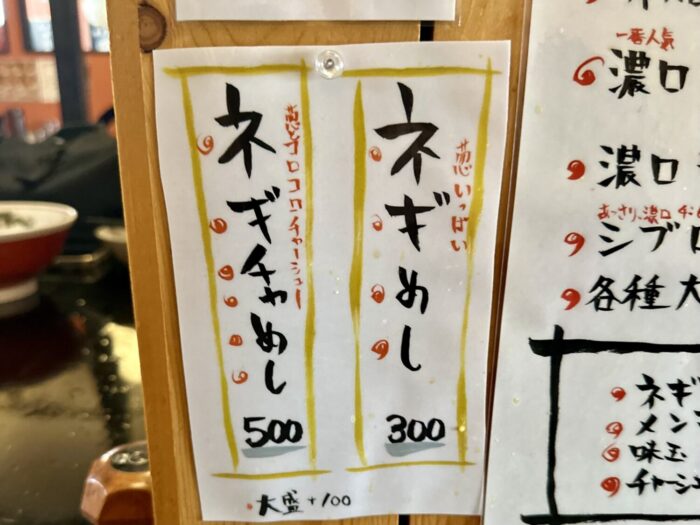 葱いっぱい
ネギめし
300
葱とゴロコロチャーシュー
ネギチャめし
500
大盛+100
一番人気
濃口
濃口
シブ
各種大
ネギ
メン
味玉
チャーシュ